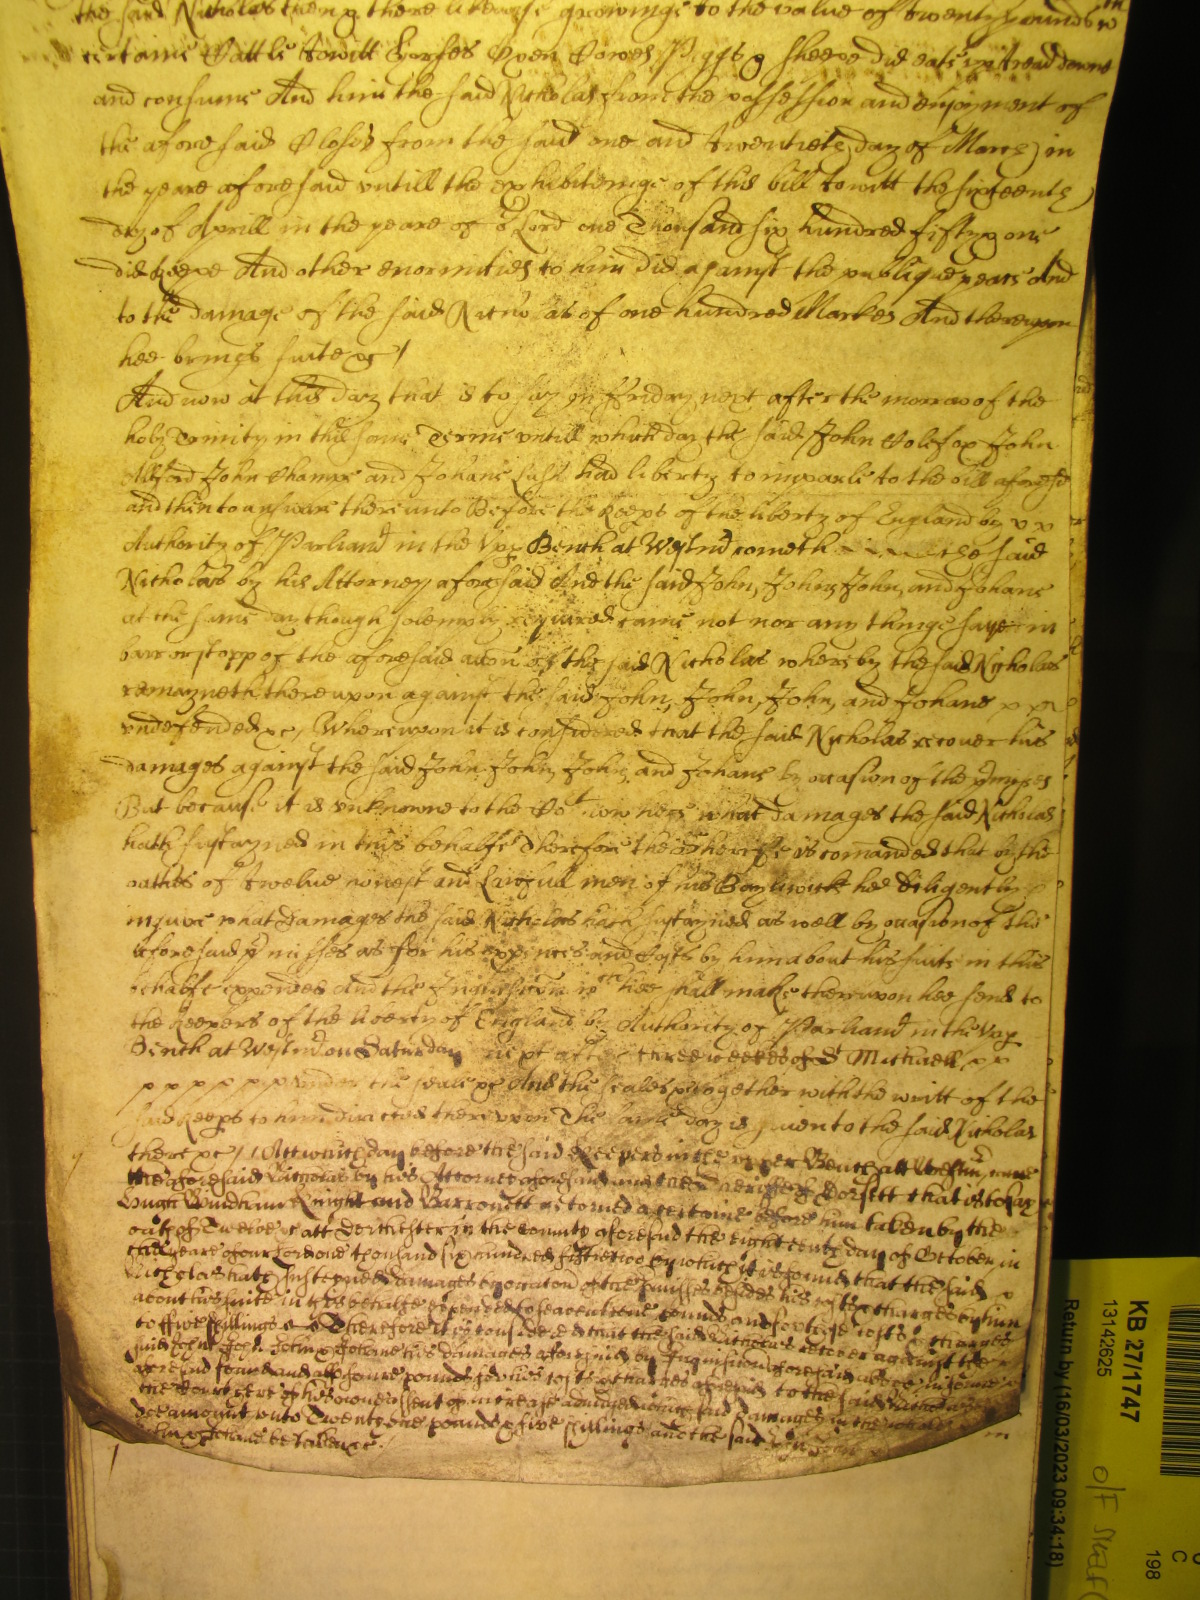 the said Nicholas then & there likewise groweinge to the value of twenty pounds wth
certaine Cattle to witt Horses Oxen Cowes Piggs & sheepe did eate upp tread downe
and consume And him the said Nicholas from the possession and enjoyment of
the aforesaid Closes from the said one and twentieth day of March in
the yeare aforesaid untill the exhibiteinge of this bill to witt the sixteenth
day of Aprill in the yeare of or Lord one Thousand six hundred fifty & one
did keepe And other enormities to him did against the publique peace And
to the damage of the said Nicholas of one hundred Markes And thereupon
hee brings suite &c /
And now at this day that is to say on Ffriday next after the morrow of the
holy Trinity in this same Terme untill which day the said John Colefox John
Allford John Champe and Johane Lush had liberty to imparle to the bill aforesd
and then to answare thereunto Before the Keeps of the liberty of England by
Authority of Parliamt in the Upp Bench at Westmr cometh the said
Nicholas by his Attorney aforesaid And the said John, John, John, and Johane
at the same day though solemnly required came not nor any thinge saye in
barr or stopp of the aforesaid accon of the said Nicholas whereby the said Nicholas
remayneth thereupon against the said John, John, John, and Johane
undefended &c / Whereupon it is considered that the said Nicholas recover his
damages against the said John John John and Johane by occasion of the pmisses
But because it is unknowne to the Cort now here what damages the said Nicholas
hath sustayned in this behalfe Therefore the Sheriffe is comanded that by the
oathes of twelve honest and Lawfull men of his Baylywick hee diligently
inquire what damages the said Nicholas hath sustayned as well by occasion of the
aforesaid pmisses as for his expences and Costs by him about his suite in this
behalfe expended and the Inquisicon wch hee shall make thereupon hee send to
the Keepers of the liberty of England by Authority of Parliamt in the Upp
Bench at Westmr on Saturday next after three weekes of St Michaell
under the seale &c And the seales &c together with the writt of the
said Keeps to him directed thereupon The same day is given to the said Nicholas
there &c / Att which day before the said Keepers in the upper Bench att Westmr came
the aforesaid Nicholas by his Attorney aforesaid and the Sheriffe of Dorsett that is to say
Hugh Windham Knight and Barronett retorned a certaine before him taken by the
oath of Twelve &c att Dorchester in the County aforesaid the eighteenth day of October in
the yeare of our Lord one thousand six hundred fiftie two by which it is found that the said
Nicholas hath susteyned damages by occasion of the pmisses besides his costs & charges by him
about his suite in this behalfe expended to seaventeene pounds and for those costs & charges
to ffive shillings Therefore it is considered that the said Nicholas recover against the
said John John John & Johane his damages aforesaid by Inquisicon aforesaid above in forme
aforesaid found and also foure pounds for his costs & charges aforesaid to the said Nicholas
the Court here of his owne assent of increase adiudged which said damages in the whole
doe amount unto Twentie one pounds & five shillings and the said John John
John & Johane be taken &c /
KB 27/1747
13142625
Return by (16/03/2023 09:34:18)
198
C
O/F